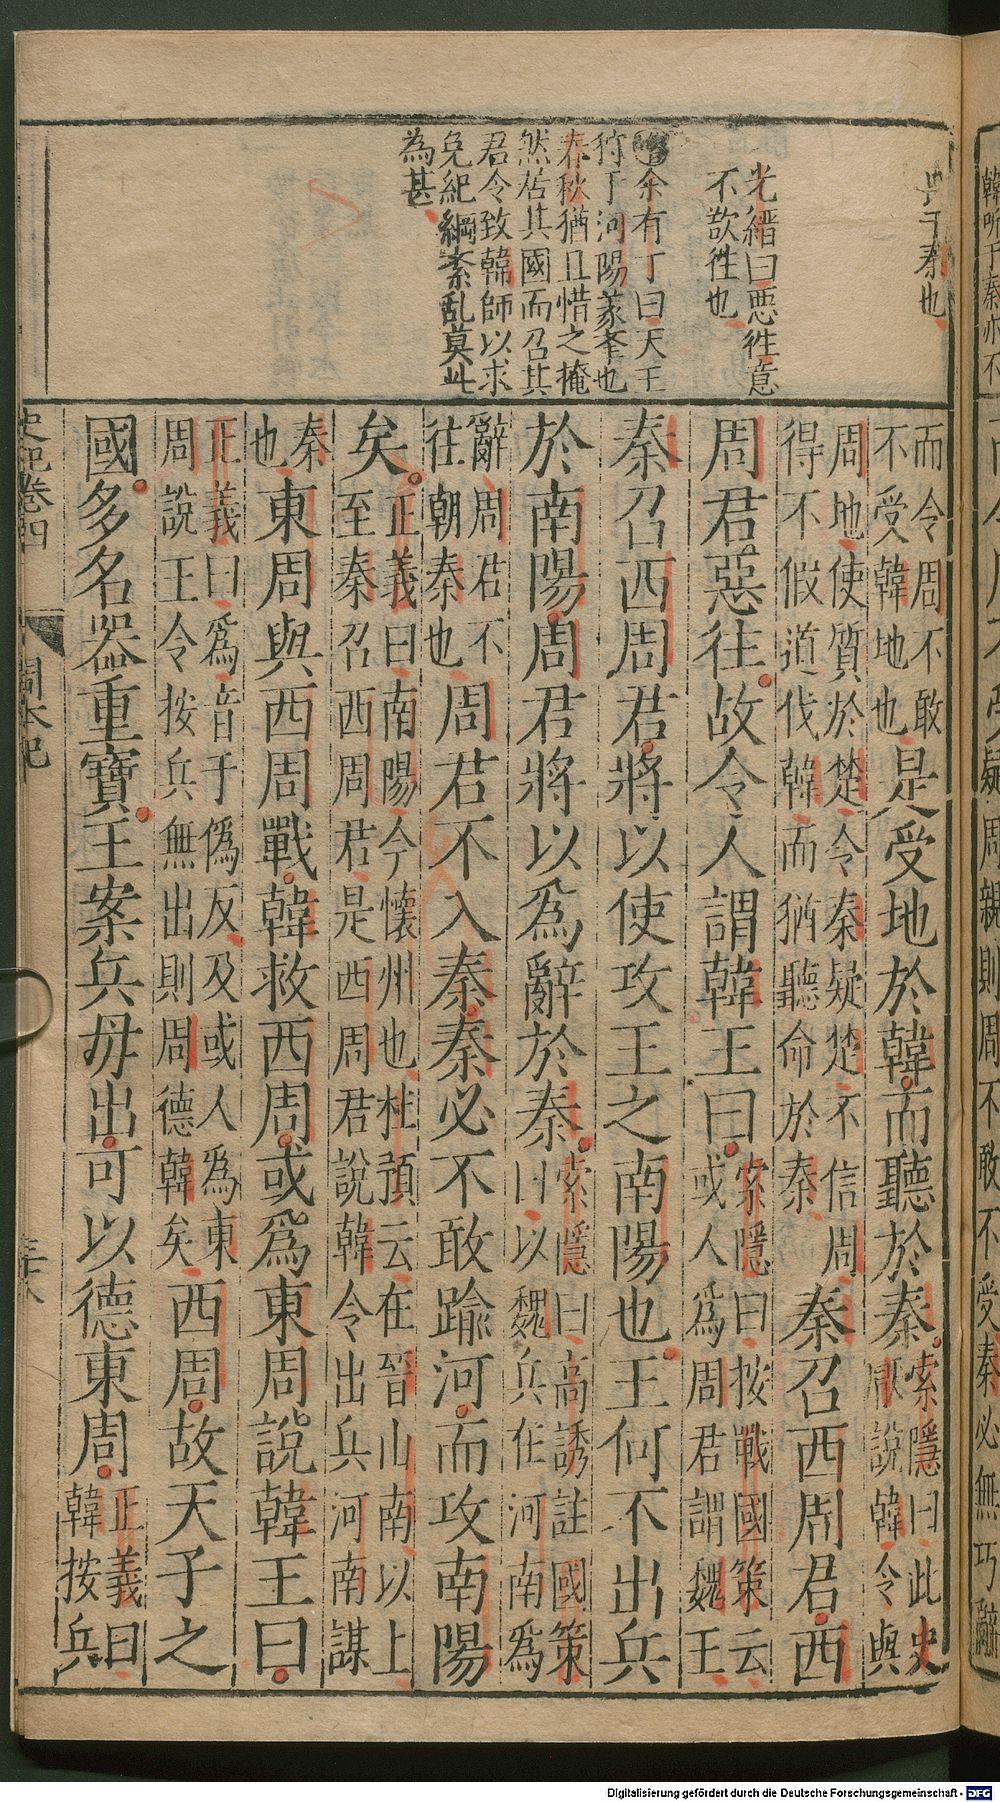 疑周親則周不敢不受秦必無巧辭
于秦也
光縉曰惡徃意
不欲徃也
余有丁曰天王
狩于河陽
春秋猶且惜之掩
然居其國而召其
君令致韓師以求
免紀綱紊乱莫此
為甚
而令周不敢
不受韓地也
是受地於韓而聽於秦
索隱曰此史
厭說韓令與
周地使質於楚令秦疑楚不信周
得不假道伐韓而猶聽命於秦
秦召西周君西
周君惡往故令人謂韓王曰
索隱曰按戰國策云
或人爲周君謂魏王
秦召西周君將以使攻王之南陽也王何不出兵
於南陽周君將以爲辭於秦
索隱曰高誘註國策
曰以魏兵在河南爲
辭周君不
往朝秦也
周君不入秦秦必不敢踰河而攻南陽
矣
正義曰南陽今懷州也杜預云在晉山南以上
至秦召西周君是西周君說韓令出兵河南謀
秦
也
東周與西周戰韓救西周或爲東周說韓王曰
正義曰爲音于僞反及或人爲東
周說王令按兵無出則周德韓矣
西周故天子之
國多名器重寶王案兵毋出可以德東周
正義曰
韓按兵
史記卷四
周本紀
三十八
Digitalisierung gefördert durch die Deutsche Forschungsgemeinschaft - DFG